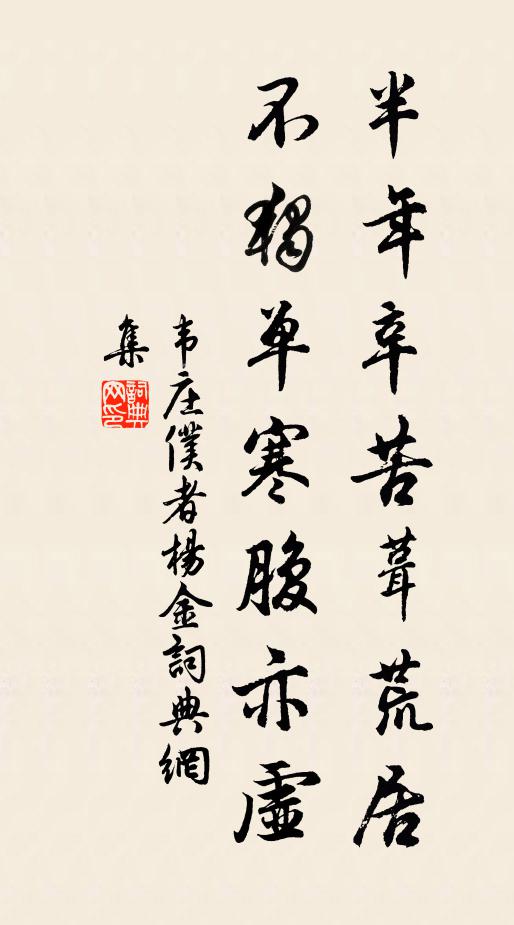 半年辛苦葺荒居
不独单寒腹亦虚
韦庄僕者楊金詞典網
集
詞典
网印